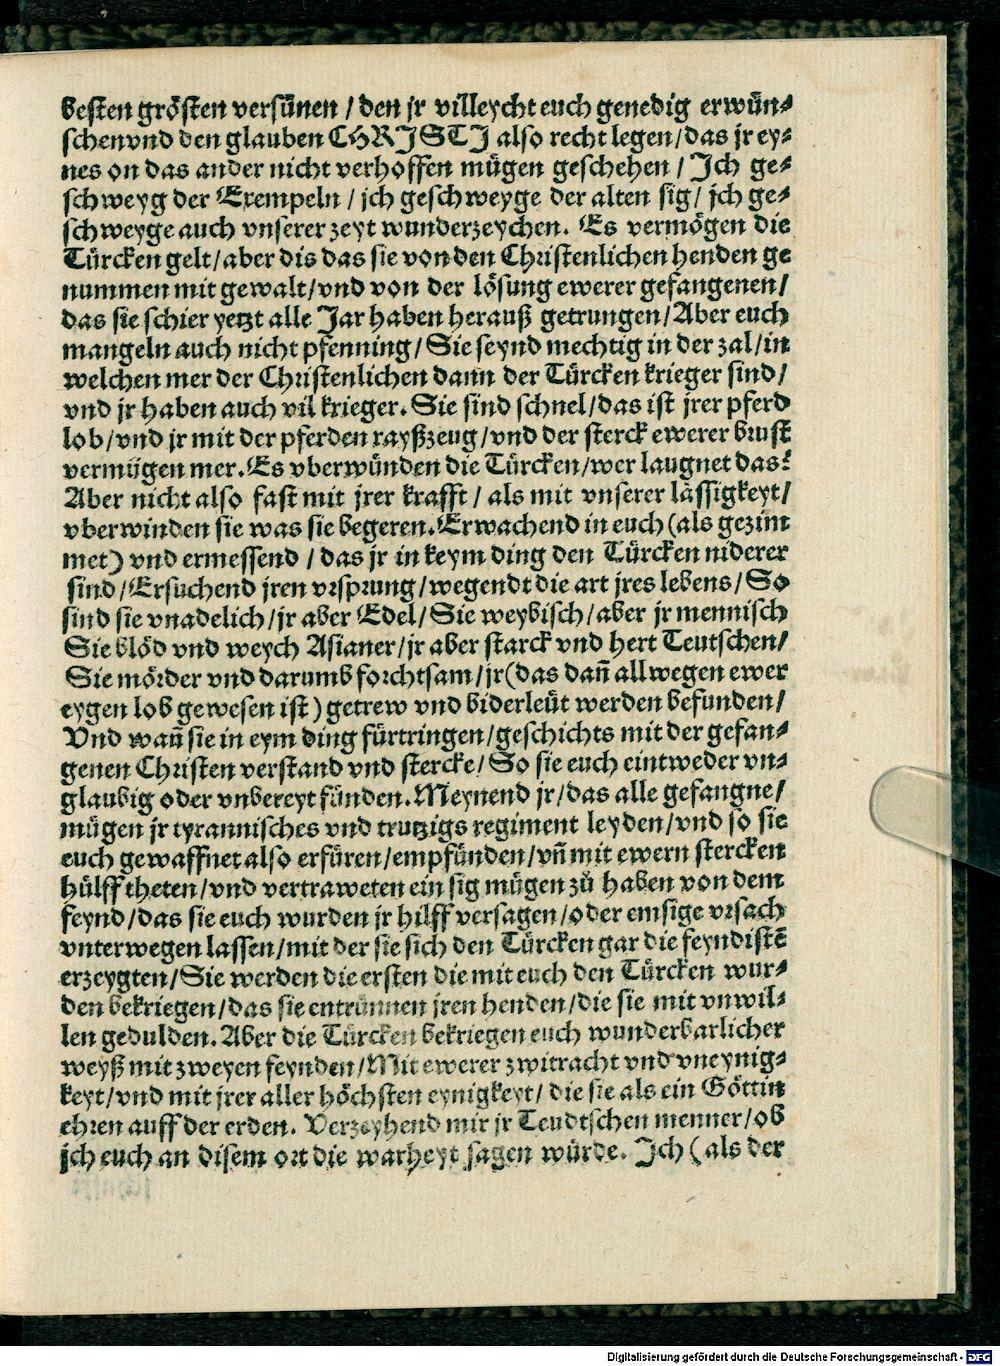 besten grösten versünen / den jr villeycht euch genedig erwün⸗
schenvnd den glauben CHRISTI also recht legen/das jr ey⸗
nes on das ander nicht verhoffen mügen geschehen / Ich ge⸗
schweyg der Exempeln / jch geschweyge der alten sig/ jch ge⸗
schweyge auch vnserer zeyt wunderzeychen. Es vermögen die
Türcken gelt/aber dis das sie von den Christenlichen henden ge
nummen mit gewalt/vnd von der lösung ewerer gefangenen/
das sie schier yetzt alle Jar haben herauß getrungen/Aber euch
mangeln auch nicht pfenning/Sie seynd mechtig in der zal/in
welchen mer der Christenlichen dann der Türcken krieger sind/
vnd jr haben auch vil krieger. Sie sind schnel/das ist jrer pferd
lob/vnd jr mit der pferden rayßzeug/vnd der sterck ewerer brust
vermügen mer. Es vberwünden die Türcken/wer laugnet das?
Aber nicht also fast mit jrer krafft / als mit vnserer lässigkeyt/
vberwinden sie was sie begeren. Erwachend in euch (als gezim
met) vnd ermessend / das jr in keym ding den Türcken niderer
sind/Ersuchend jren vrsprung/wegendt die art jres lebens/So
sind sie vnadelich/jr aber Edel/Sie weybisch/aber jr mennisch
Sie blöd vnd weych Asianer/jr aber starck vnd hert Teutschen/
Sie mörder vnd darumb forchtsam/jr(das dañ allwegen ewer
eygen lob gewesen ist) getrew vnd biderleüt werden befunden/
Vnd wañ sie in eym ding fürtringen/geschichts mit der gefan⸗
genen Christen verstand vnd stercke/ So sie euch eintweder vn⸗
glaubig oder vnbereyt fünden. Meynend jr/das alle gefangne/
mügen jr tyrannisches vnd trutzigs regiment leyden/vnd so sie
euch gewaffnet also erfüren/empfünden/vñ mit ewern stercken
hülff theten/vnd vertraweten ein sig mügen zů haben von dem
feynd/das sie euch wurden jr hilff versagen/oder emsige vrsach
vnterwegen lassen/mit der sie sich den Türcken gar die feyndistẽ
erzeygten/Sie werden die ersten die mit euch den Türcken wur⸗
den bekriegen/das sie entrünnen jren henden/die sie mit vnwil⸗
len gedulden. Aber die Türcken bekriegen euch wunderbarlicher
weyß mit zweyen feynden/Mit ewerer zwitracht vnd vneynig⸗
keyt/vnd mit jrer aller höchsten eynigkeyt/ die sie als ein Göttin
ehren auff der erden. Verzeyhend mir jr Teudtschen menner/ob
jch euch an disem ort die warheyt sagen würde. Ich (als der
Digitalisierung gefördert durch die Deutsche Forschungsgemeinschaft - DFG